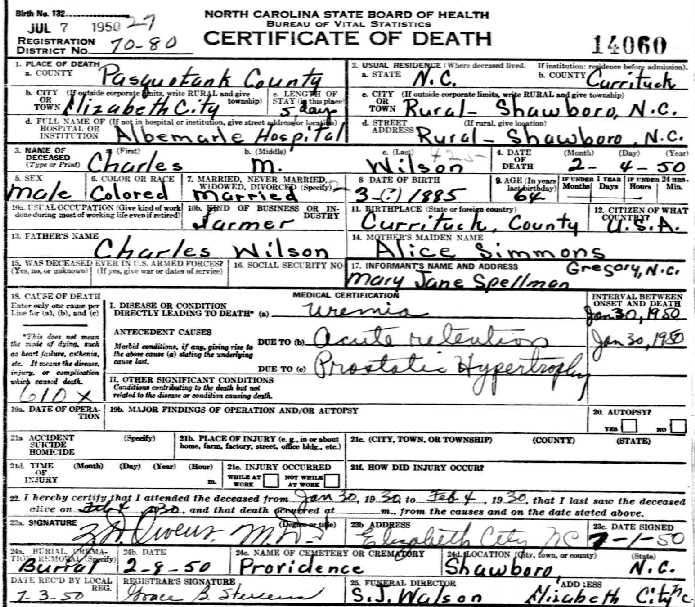 Birth No. 132 27
NORTH CAROLINA STATE BOARD OF HEALTH
BUREAU OF VITAL STATISTICS
JUL 7 1950
CERTIFICATE OF DEATH
REGISTRATION DISTRICT No. 70-80
14060
1. PLACE OF DEATH
a. COUNTY Pasquotank County
2. USUAL RESIDENCE (Where deceased lived. If institution: residence before admission).
a. STATE N.C. b. COUNTY Currituck
b. CITY OR TOWN (If outside corporate limits, write RURAL and give township) Elizabeth City
c. LENGTH OF STAY (in this place) 5 days
c. CITY OR TOWN (If outside corporate limits, write RURAL and give township) Rural- Shawboro, N.C.
d. FULL NAME OF HOSPITAL OR INSTITUTION (If not in hospital or institution, give street address or location) Albemarle Hospital
d. STREET ADDRESS (If rural, give location) Rural- Shawboro, N.C.
3. NAME OF DECEASED (Type or Print)
a. (First) Charles b. (Middle) M. c. (Last) Wilson
4. DATE OF DEATH (Month) (Day) (Year) 2- 4- 50
5. SEX Male
6. COLOR OR RACE Colored
7. MARRIED, NEVER MARRIED, WIDOWED, DIVORCED (Specify) Married
8. DATE OF BIRTH 3-(?) 1885
9. AGE (In years last birthday) 64
IF UNDER 1 YEAR Months Days
IF UNDER 24 HRS. Hours Min.
10a. USUAL OCCUPATION (Give kind of work done during most of working life even if retired)
10b. KIND OF BUSINESS OR INDUSTRY Farmer
11. BIRTHPLACE (State or foreign country) Currituck, County
12. CITIZEN OF WHAT COUNTRY? U.S.A.
13. FATHER'S NAME Charles Wilson
14. MOTHER'S MAIDEN NAME Alice Simmons
15. WAS DECEASED EVER IN U.S. ARMED FORCES? (Yes, no, or unknown) (If yes, give war or dates of service)
16. SOCIAL SECURITY NO.
17. INFORMANT'S NAME AND ADDRESS Gregory, N.C.
Mary Jane Spellman
18. CAUSE OF DEATH
Enter only one cause per Line for (a), (b), and (c)
MEDICAL CERTIFICATION
INTERVAL BETWEEN ONSET AND DEATH
I. DISEASE OR CONDITION DIRECTLY LEADING TO DEATH* (a) Uremia Jan 30, 1950
*This does not mean the mode of dying, such as heart failure, asthenia, etc. It means the disease, injury, or complication which caused death.
ANTECEDENT CAUSES
Morbid conditions, if any, giving rise to the above cause (a) stating the underlying cause last.
DUE TO (b) Acute retention Jan 30, 1950
DUE TO (c) Prostatic Hypertrophy
II. OTHER SIGNIFICANT CONDITIONS
Conditions contributing to the death but not related to the disease or condition causing death.
610X
19a. DATE OF OPERATION
19b. MAJOR FINDINGS OF OPERATION AND/OR AUTOPSY
20. AUTOPSY? YES NO
21a. ACCIDENT SUICIDE HOMICIDE (Specify)
21b. PLACE OF INJURY (e.g., in or about home, farm, factory, street, office bldg., etc.)
21c. (CITY, TOWN, OR TOWNSHIP) (COUNTY) (STATE)
21d. TIME OF INJURY (Month) (Day) (Year) (Hour) m.
21e. INJURY OCCURRED WHILE AT WORK NOT WHILE AT WORK
21f. HOW DID INJURY OCCUR?
22. I hereby certify that I attended the deceased from Jan 30, 1950, to Feb 4, 1950, that I last saw the deceased
alive on Feb 4 1950, and that death occurred at m., from the causes and on the date stated above.
23a. SIGNATURE (Degree or title) Z. D. Owens, M.D.
23b. ADDRESS Elizabeth City NC
23c. DATE SIGNED 7-1-50
24a. BURIAL, CREMATION, REMOVAL (Specify) Burial
24b. DATE 2-8-50
24c. NAME OF CEMETERY OR CREMATORY Providence
24d. LOCATION (City, town, or county) (State) Shawboro N.C.
DATE REC'D BY LOCAL REG. 7-3-50
REGISTRAR'S SIGNATURE Grace B Stevens
25. FUNERAL DIRECTOR ADDRESS
S.J. Walson Elizabeth City NC